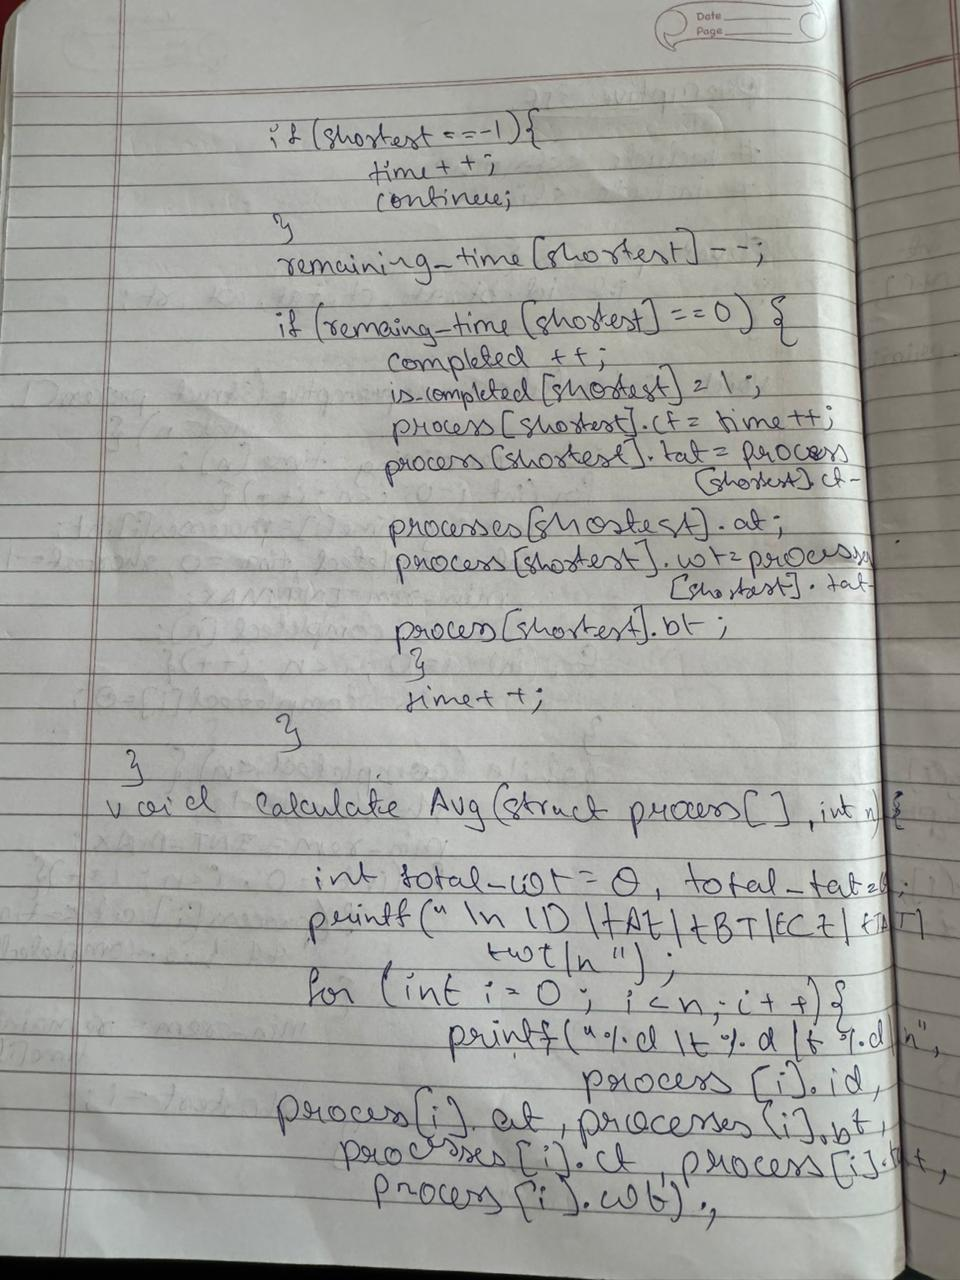 Date
Page
if (shortest == -1){
time++;
continue;
}
remaining_time [shortest] --;
if (remaing_time [shortest] == 0) {
completed ++;
is_completed [shortest] = 1;
process[shortest].ct = time++;
process[shortest].tat = process
[shortest].ct-
processes[shortest].at;
process[shortest].wt = process
[shortest].tat-
process[shortest].bt;
}
time++;
}
}
void calculate Avg (struct process[], int n) {
int total_wt = 0, total_tat=0;
printf("\n ID |tAt|tBT|tCt|tTAT|
twt|n");
for (int i=0; i<n; i++){
printf("%d \t %d |t %d|n",
process [i].id,
process[i].at, processes[i].bt,
processes[i].ct, process[i].tat,
process[i].wt);